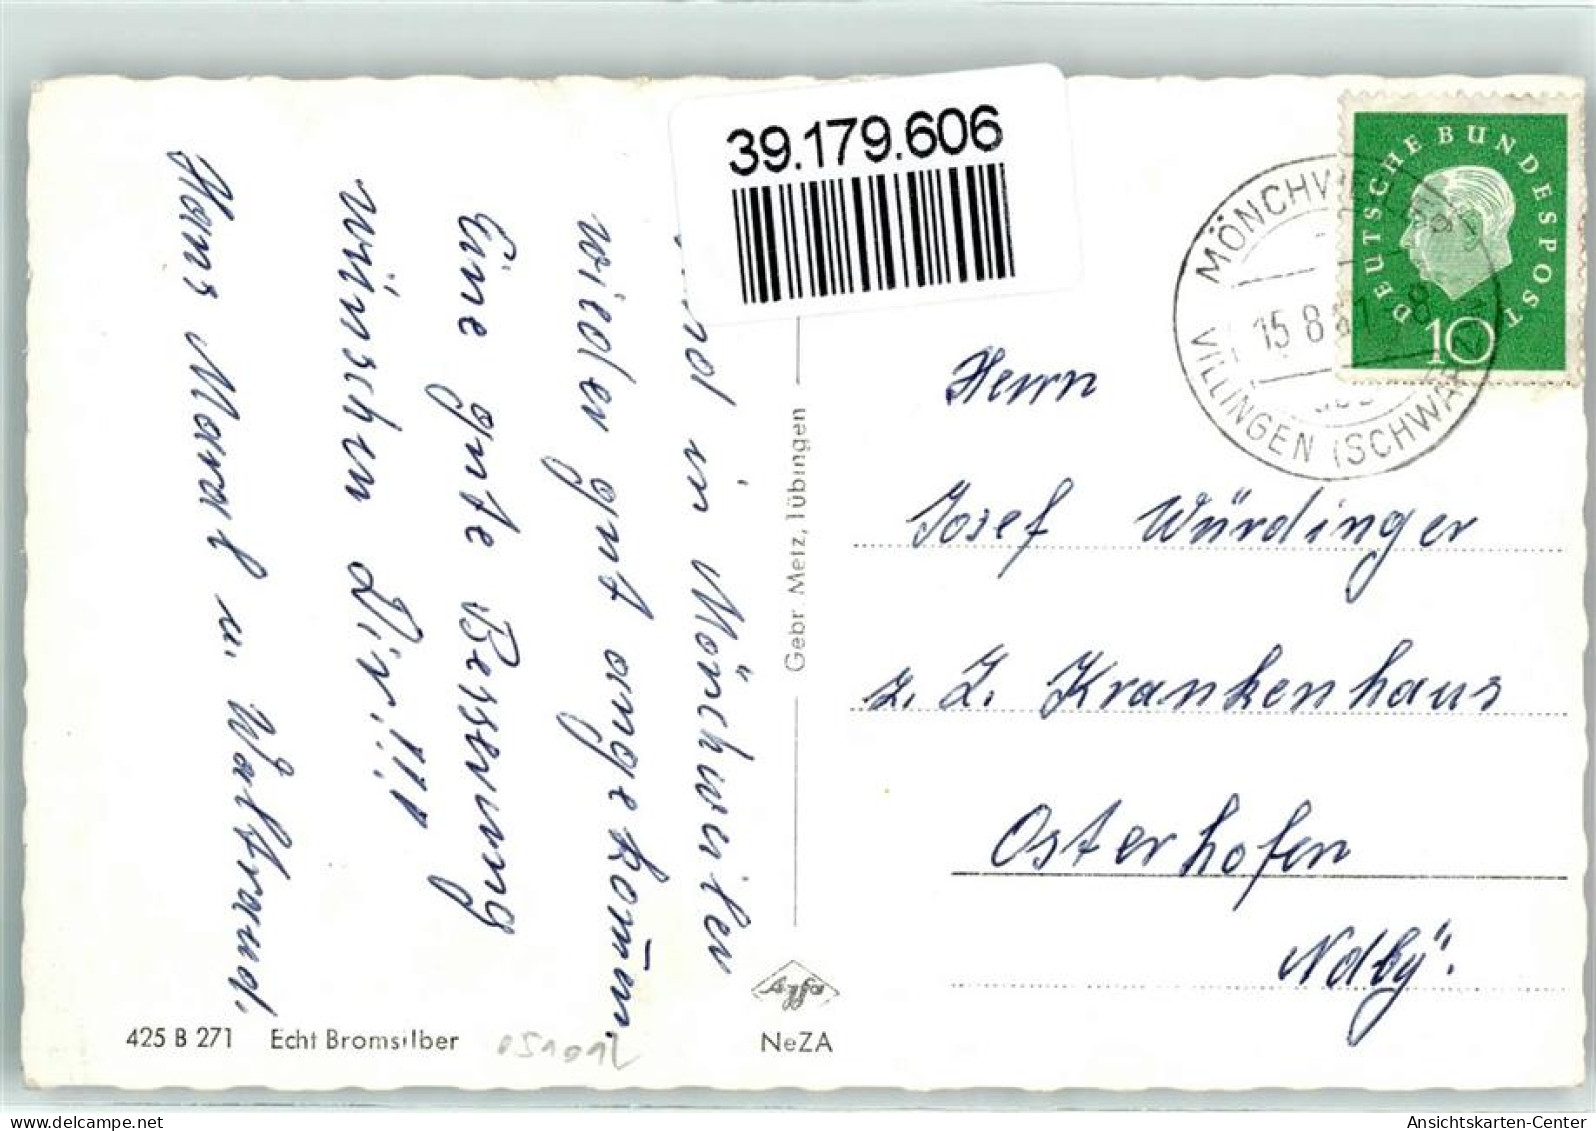 39.179.606
nd in Mönchweiler
wieder gut angekom̄en.
Eine gute Besserung
wünschen Dir!!!
Hans Maral u. Waltraud.
425 B 271 Echt Bromsilber
Gebr. Metz, Tübingen
Agfa
NeZA
DEUTSCHE BUNDESPOST
10
MÖNCHW
15.8.61-8
VILLINGEN (SCHWARZ
Herrn
Josef Würdinger
z. Z. Krankenhaus
Osterhofen
Ndby.
www.delcampe.net
Ansichtskarten-Center